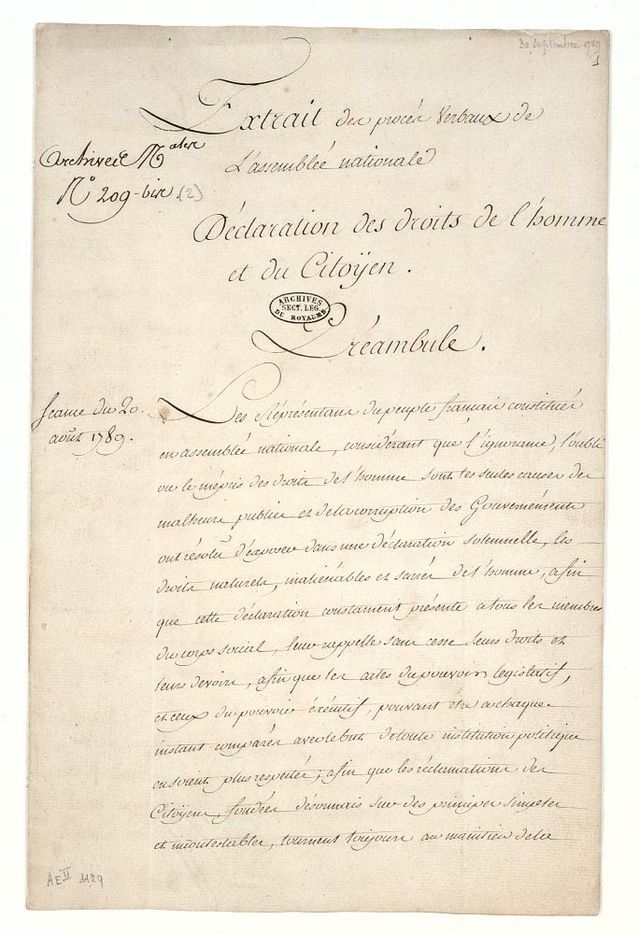 30 Septembre 1789
1
Extrait des procès Verbaux de
L'assemblée nationale
archives Mater
N° 209-bis (2)
Déclaration des droits de l'homme
et du Citoÿen.
ARCHIVES
SECT. LEG.
DU ROYAUME
Préambule.
Séance du 20.
août 1789.
Les Réprésentans du peuple francais constitués
en assemblée nationale, considérant que l'ignorance, l'oubli
ou le mépris des droits de l'homme sont les seules causes des
malheurs publics et de la corruption des Gouvernéments
ont résolu d'exposer dans une déclaration solemnelle, les
droits naturels, inaliénables et sacrés de l'homme, afin
que cette déclaration constament présente a tous les membres
du corps social, leur rappelle sans cesse leurs droits et
leurs devoirs, afin que les actes du pouvoir legislatif,
et ceux du pouvoir éxécutif, pouvant étre a chaque
instant comparés avec le but de toute institution politique
en soient plus respectés; afin que les réclamations des
Citoyens, fondées désormais sur des principes simples
et incontestables, tournent toujours au maintien de la
AE II 1129